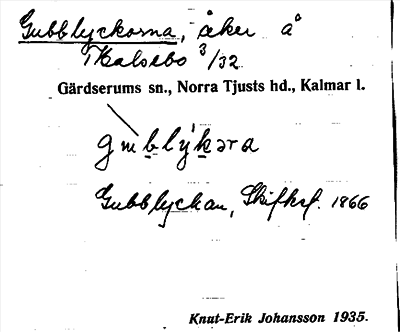 Gubblyckorna, åker å
Skalsebo 3/32
Gärdserums sn., Norra Tjusts hd., Kalmar l.
gɯblýkəra
Gubblyckan, Skifksf. 1866
Knut-Erik Johansson 1935.